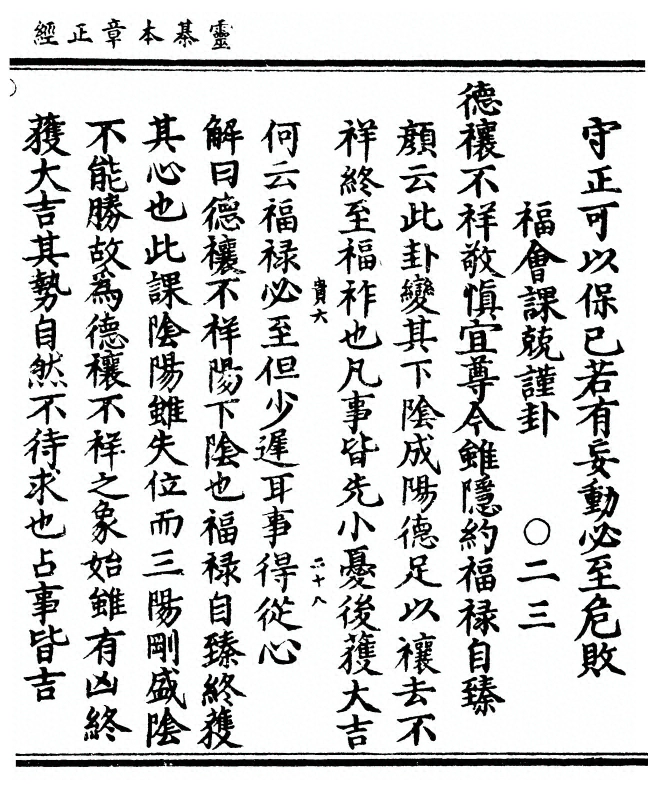 靈棊本章正經
守正可以保已若有妄動必至危敗
福會課兢謹卦 〇二三
德禳不祥敬慎宜尊令雖隱約福禄自臻
顔云此卦變其下陰成陽德足以禳去不
祥終至福祚也凡事皆先小憂後蒦大吉
貴六 二十八
何云福禄必至但少遲耳事得從心
解曰德禳不祥陽下陰也福禄自臻終蒦
其心也此課陰陽雖失位而三陽剛盛陰
不能勝故為德禳不祥之象始雖有凶終
蒦大吉其勢自然不待求也占事皆吉